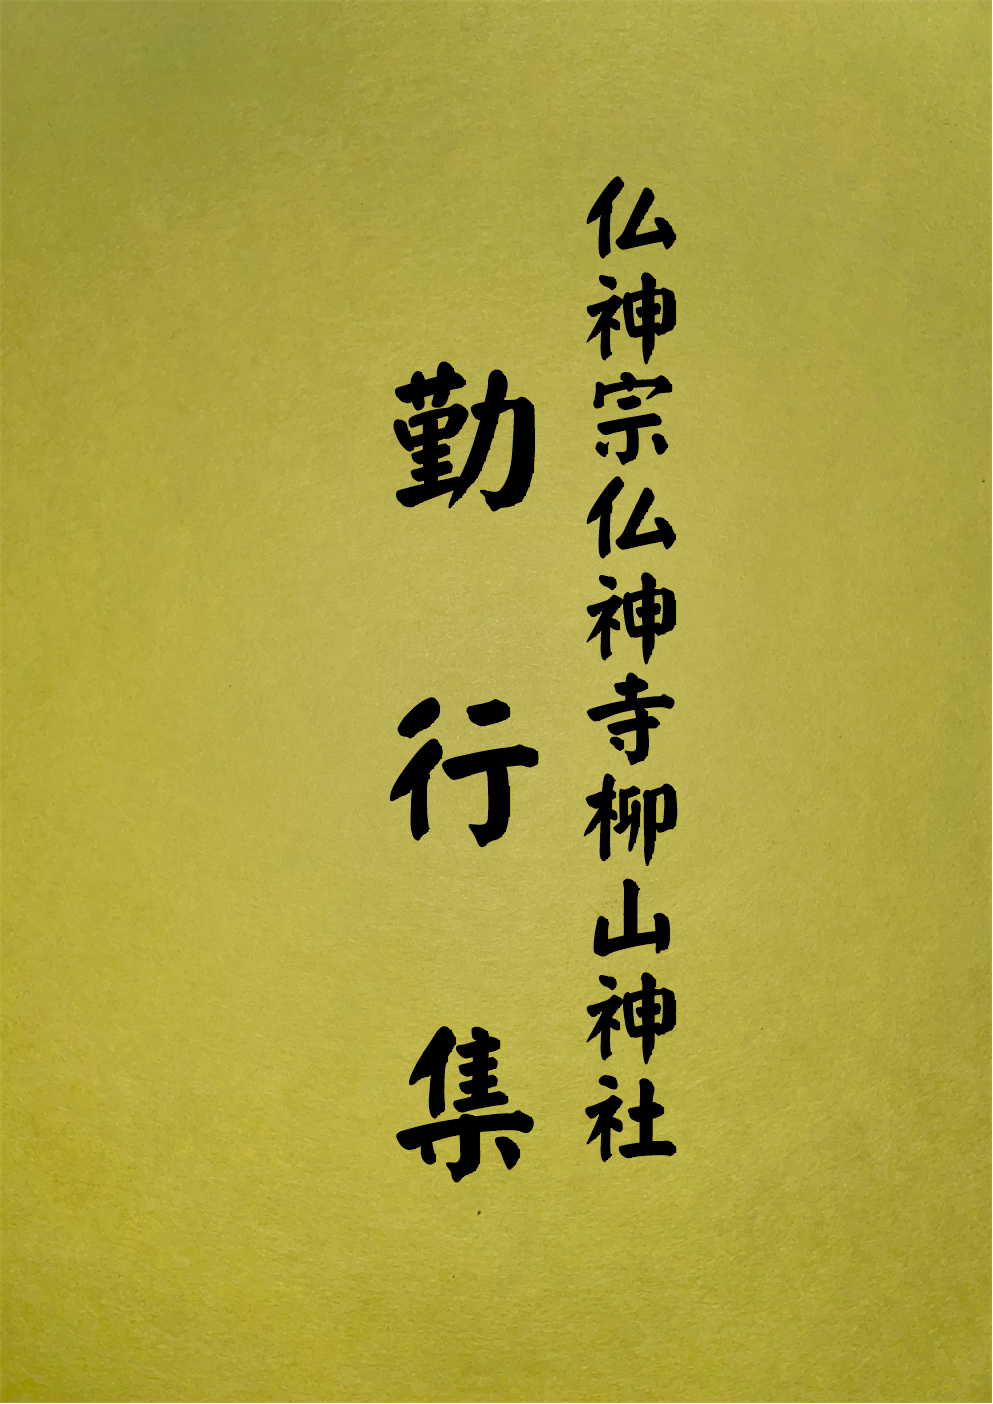 仏神宗仏神寺柳山神社
勤行集